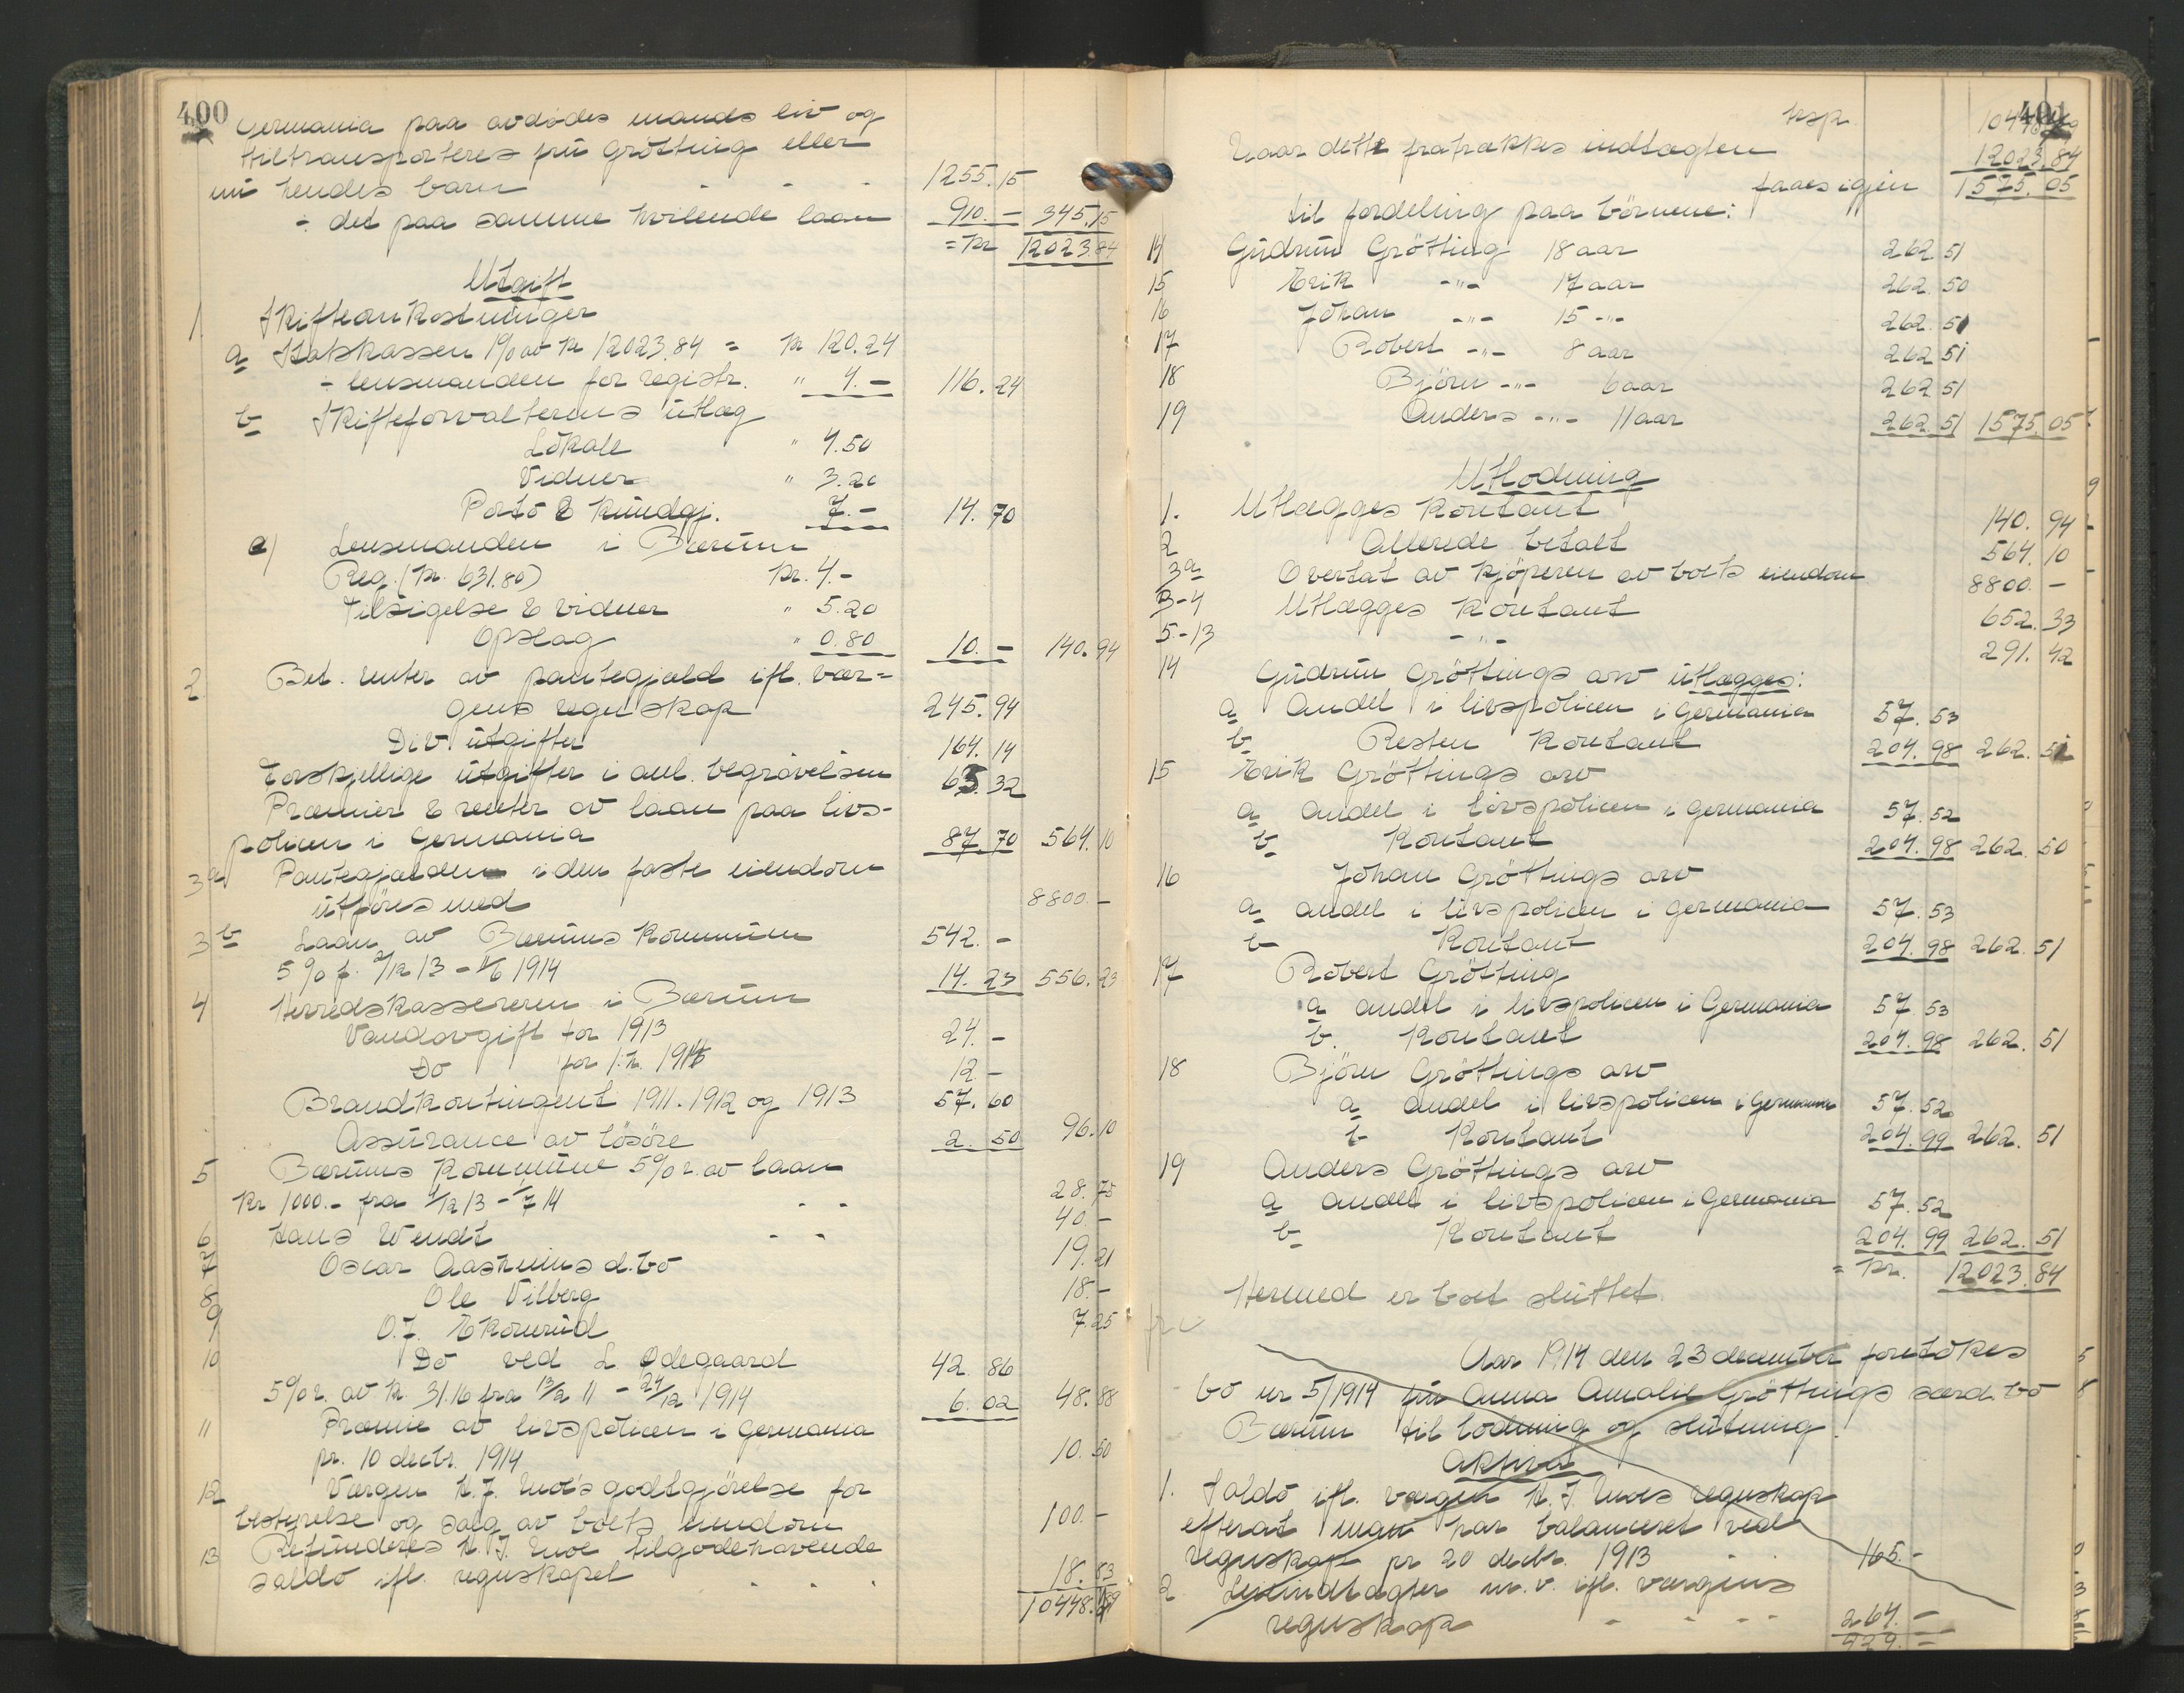 400
Germania paa avdødes mands liv og
tiltransporteres fru Grötting eller
nu hendes barn - - - 1255.15
÷ det paa samme hvilende laan 910.- 345.15
= Kr 12023.84
Utgift
1 Skifteomkostninger
a Statskassen 1% av Kr 12023.84 = Kr 120.24
÷ lensmanden for registr. " 4.- 116.24
b Skifteforvalterens utlæg
Lokale " 4.50
Vidner " 3.20
Porto & kundgj. 7.- 14.70
c) Lensmanden i Bærum
Reg. (Kr. 631.80) Kr. 4.-
Tilsigelse & vidner " 5.20
Opslag " 0.80 10.- 140.94
2 Bet. renter av pantegjæld ifl. vær=
gens regnskap 245.94
Div utgifter 164.14
Forskjellige utgifter i anl. begravelsen 65.32
Præmier & renter av laan paa livs-
policen i Germania 87.70 564.10
3a Pantegjælden i den faste eiendom
utføres med 8800.-
3b Laan av Bærums kommune 542.-
5% f. 2/12 13 - 11/6 1914 14.23 556.23
4 Herredskassereren i Bærum
Vandavgift for 1913 24.-
Do for 1. h. 1914 12-
Brandkontingent 1911. 1912 og 1913 57.60
Assurance av løsøre 2.50 96.10
5 Bærums kommune 5% r. av laan
Kr 1000.- fra 1/12 13 - 1/7 14 - - 28.75
6 Hans Wendt - - 40-
7 Oscar d. bo 19.21
8 Ole Vilberg 18.-
9 O.J. Ekornrud 7.25
10 Do ved L. Ødegaard 42.86
5% r. av kr. 31.16 fra 13/2 11 - 24/12 1914 6.02 48.88
11 Præmie av livspolicen i Germania
pr. 10 decbr. 1914 10.50
12 Værgen H.J. Moe's godtgjörelse for
bestyrelse og salg av boets eiendom 100.-
13 Refunderes H.J. Moe tilgodehavende
saldo ifl. regnskapet - - - 18.83
10448.
401
tsp. 10448.
Naar dette fratrækkes indtægten 12023.84
faaes igjen 1575.05
til fordeling paa børnene:
14 Gudrun Grötting 18 aar 262 51
15 Erik -"- 17 aar 262 50
16 Johan -"- 15 -"- 262 51
17 Robert -"- 8 aar 262 51
18 Björn -"- 6 aar 262 51
19 Anders -"- 11 aar 262 51 1575.05
Utlodning
1. Utlægges kontant 140.94
2 Allerede betalt 564.10
3a Overtat av kjøperen av boets eiendom 8800.-
3-4 Utlægges kontant 652.33
5-13 -"- 291.42
14 Gudrun Gröttings arv utlægges:
a Andel i livspolicen i Germania 57.53
b Resten kontant 204.98 262.51
15 Erik Gröttings arv
a andel i livspolicen i Germania 57.52
b kontant 204.98 262.50
16 Johan Gröttings arv
a andel i livspolicen i Germania 57.53
b kontant 204.98 262.51
17 Robert Grötting
a andel i livspolicen i Germania 57.53
b. kontant 204.98 262.51
18 Björn Gröttings arv
a andel i livspolicen i Germania 57.52
b kontant 204.99 262.51
19 Anders Gröttings arv
a andel i livspolicen i Germania 57.52
b kontant 204.99 262.51
= Kr. 12023.84
Hermed er boet sluttet.
Aar 1914 den 23 december foretokes
bo nr 5/1914 fru Anna Amalie Gröttings særd. bo
Bærum til lodning og slutning.
Aktiva
1. Saldo ifl. værgen H.J. Moes regnskap
efterat man har balanceret ved
regnskap pr 20 decbr. 1913 - - 165.-
2 Leieindtægter m.v. ifl. værgens
regnskap - - - - 264.-
429.-